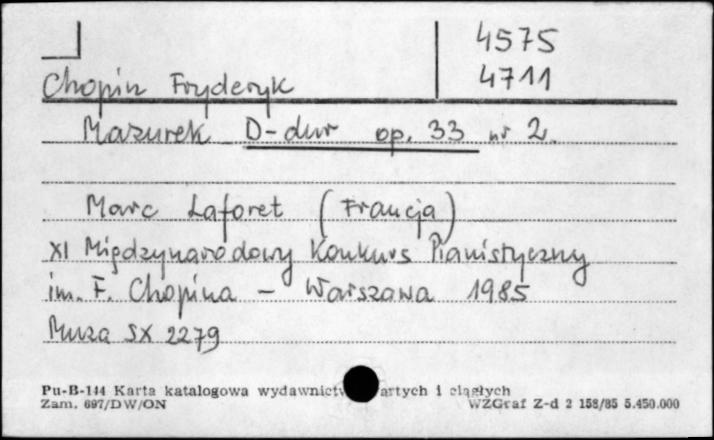 4575
4711
Chopin Fryderyk
Mazurek D-dur op. 33 nr 2.
Marc Laforet (Francja)
XI Międzynarodowy Konkurs Pianistyczny
im. F. Chopina - Warszawa 1985
Muza SX 2279
Pu-B-144 Karta katalogowa wydawnictw artych i ciągłych
Zam. 697/DW/ON WZGraf Z-d 2 158/85 5.450.000